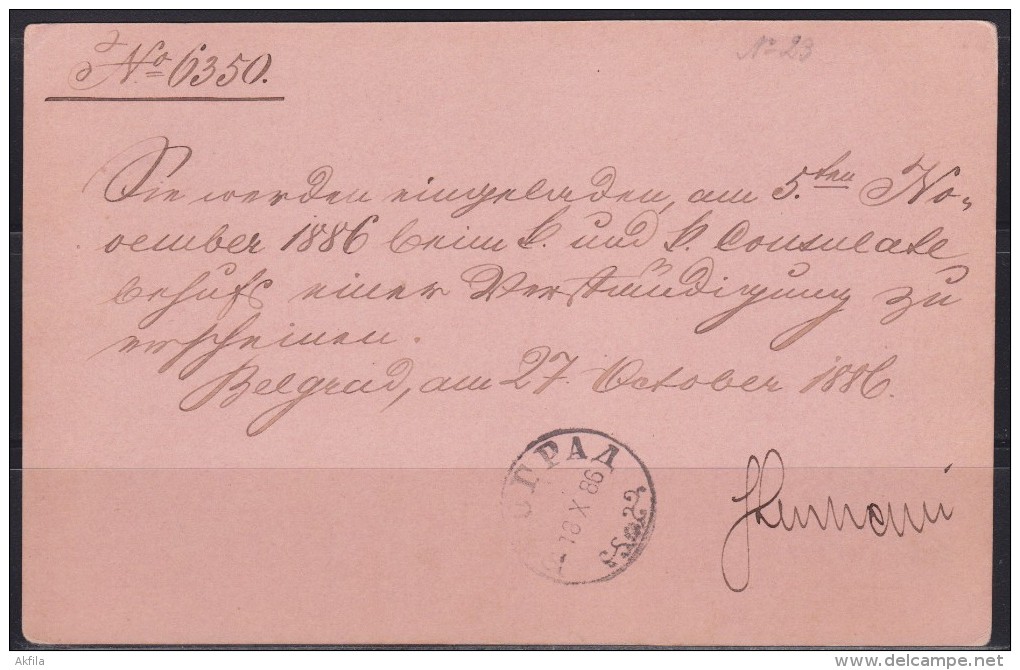 No 6350.
No 23
Sie werden eingeladen, am 5.ten No-
vember 1886 beim k. und k. Consulate
behufs einer Verständigung zu
erscheinen.
Belgrad, am 27. October 1886.
ГРАД
X 86
Akfila
delcampe.net